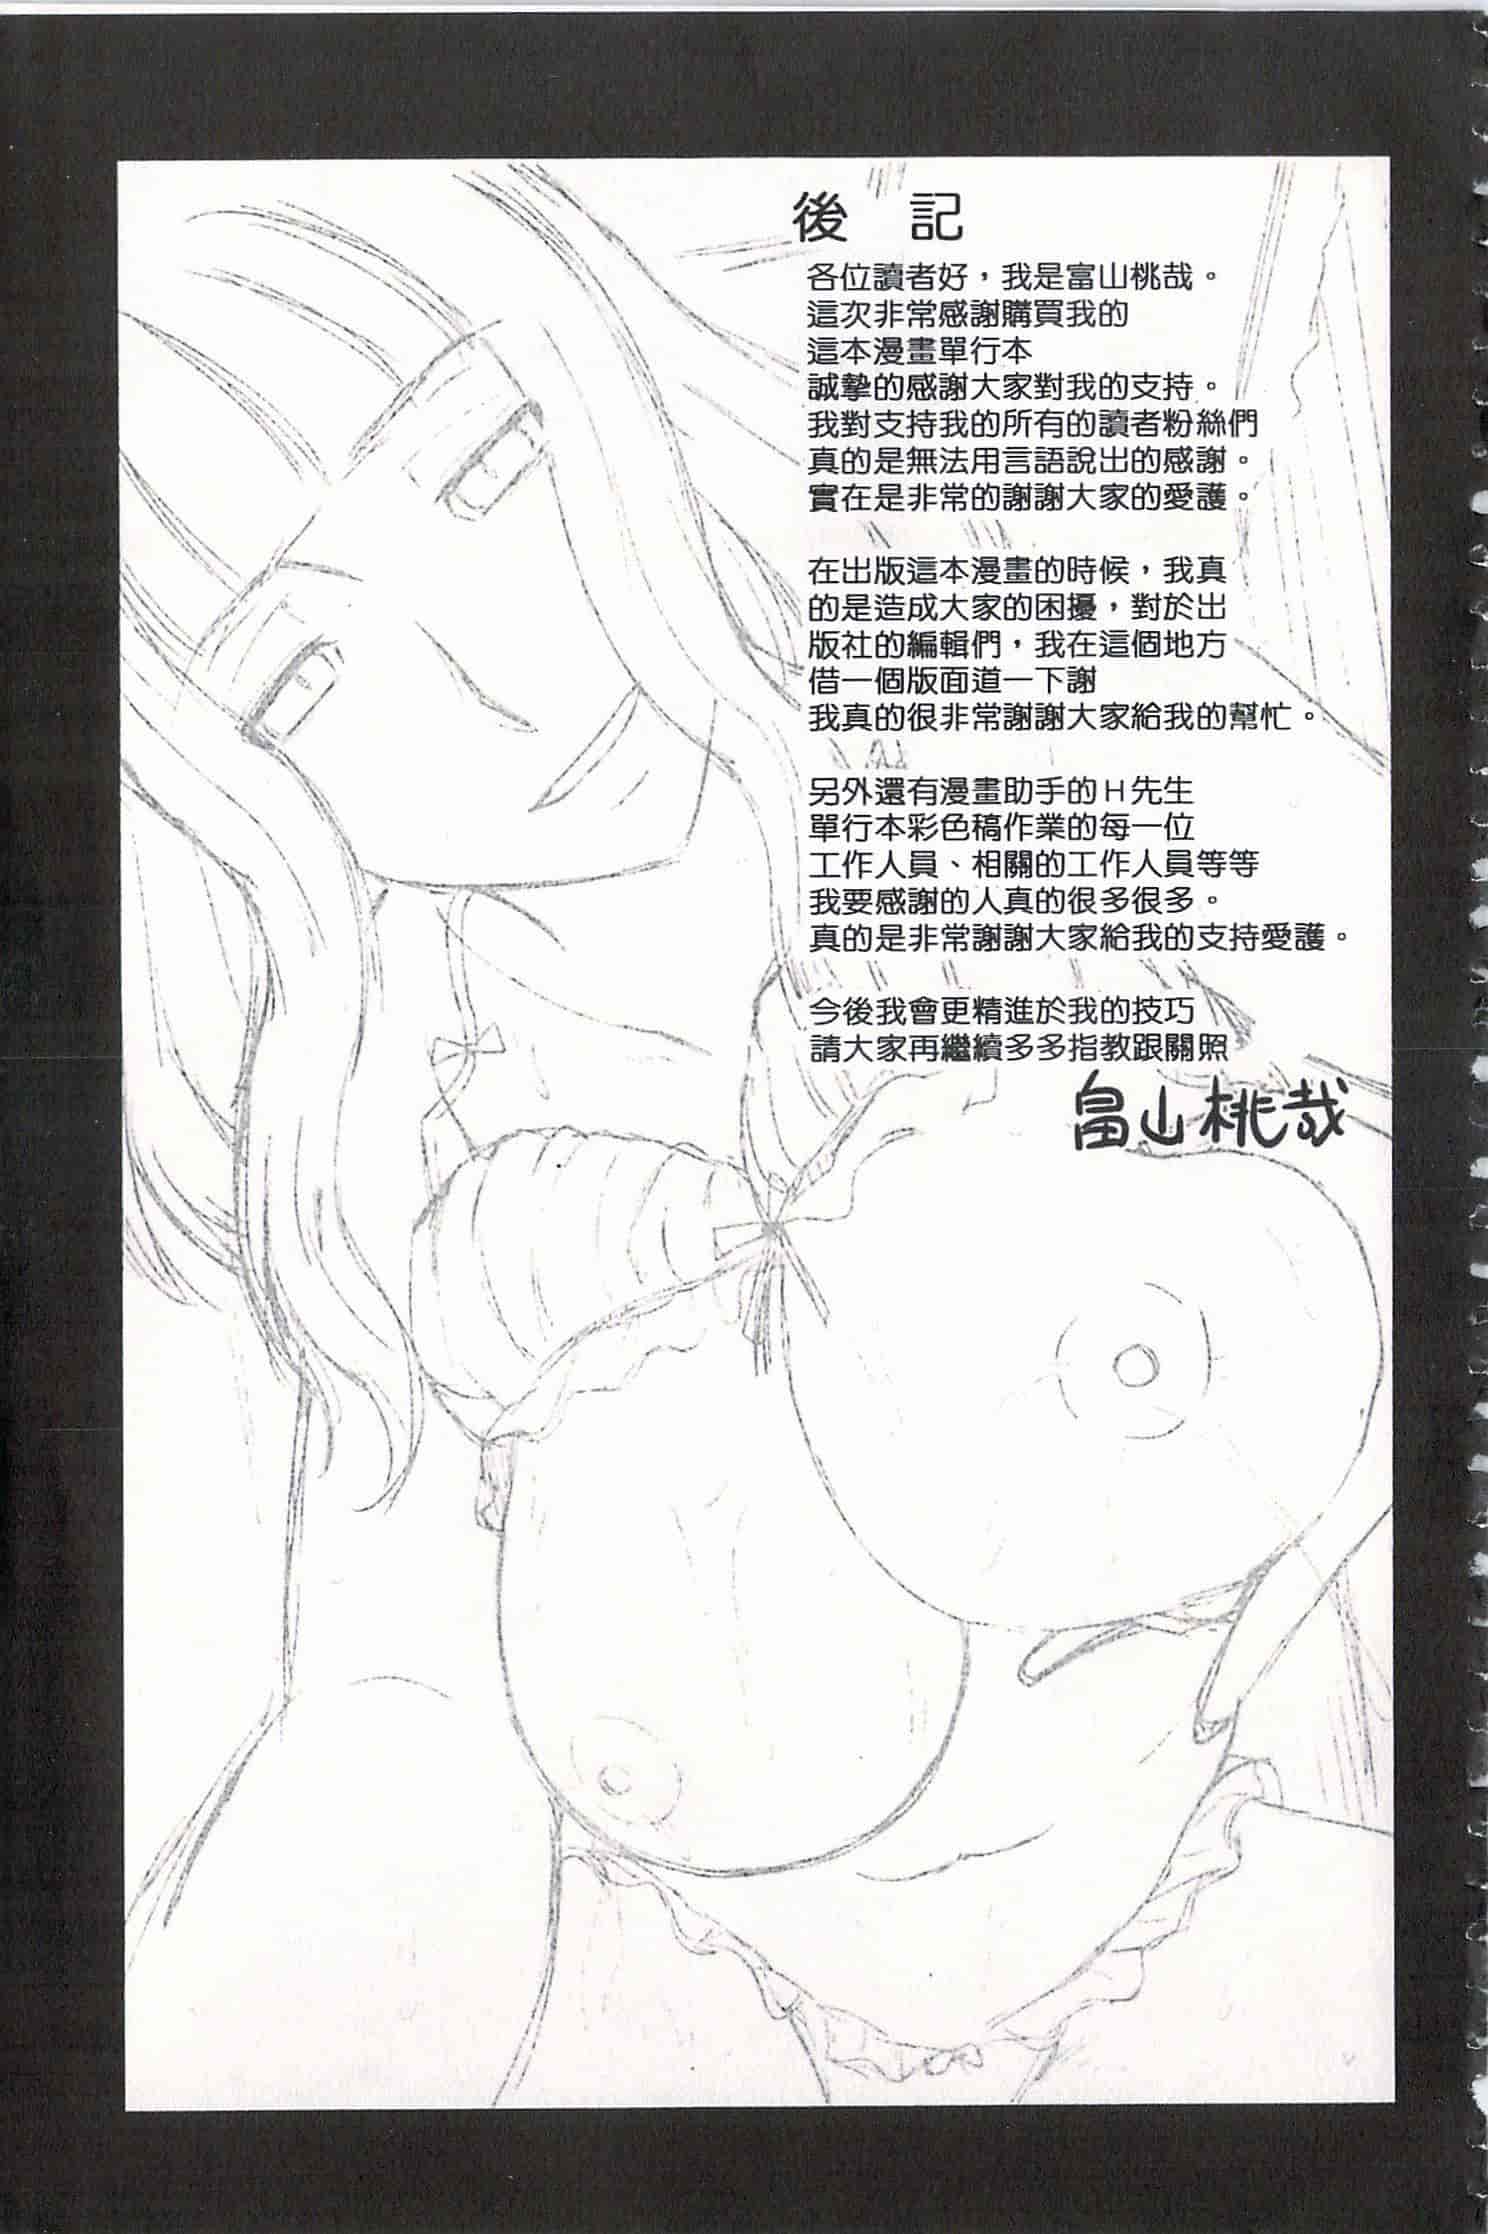 後 記
各位讀者好，我是富山桃哉。
這次非常感謝購買我的
這本漫畫單行本
誠摯的感謝大家對我的支持。
我對支持我的所有的讀者粉絲們
真的是無法用言語說出的感謝。
實在是非常的謝謝大家的愛護。
在出版這本漫畫的時候，我真
的是造成大家的困擾，對於出
版社的編輯們，我在這個地方
借一個版面道一下謝
我真的很非常謝謝大家給我的幫忙。
另外還有漫畫助手的H先生
單行本彩色稿作業的每一位
工作人員、相關的工作人員等等
我要感謝的人真的很多很多。
真的是非常謝謝大家給我的支持愛護。
今後我會更精進於我的技巧
請大家再繼續多多指教跟關照
畠山桃哉